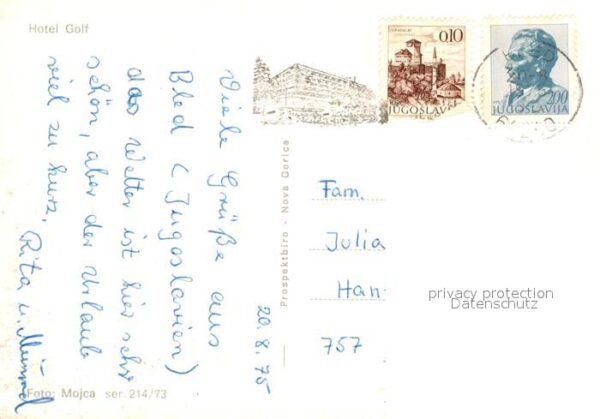 Hotel Golf
Viele Grüße aus
Bled (Jugoslavien)
das Wetter ist hier sehr
schön, aber der Urlaub
viel zu kurz.
Rita u.
20.8.75
Foto: Mojca ser. 214/73
Prospektbiro - Nova Gorica
0.10
JUGOSLAVIJA
2.00
JUGOSLAVIJA
Fam.
Julia
Han
757
privacy protection
Datenschutz